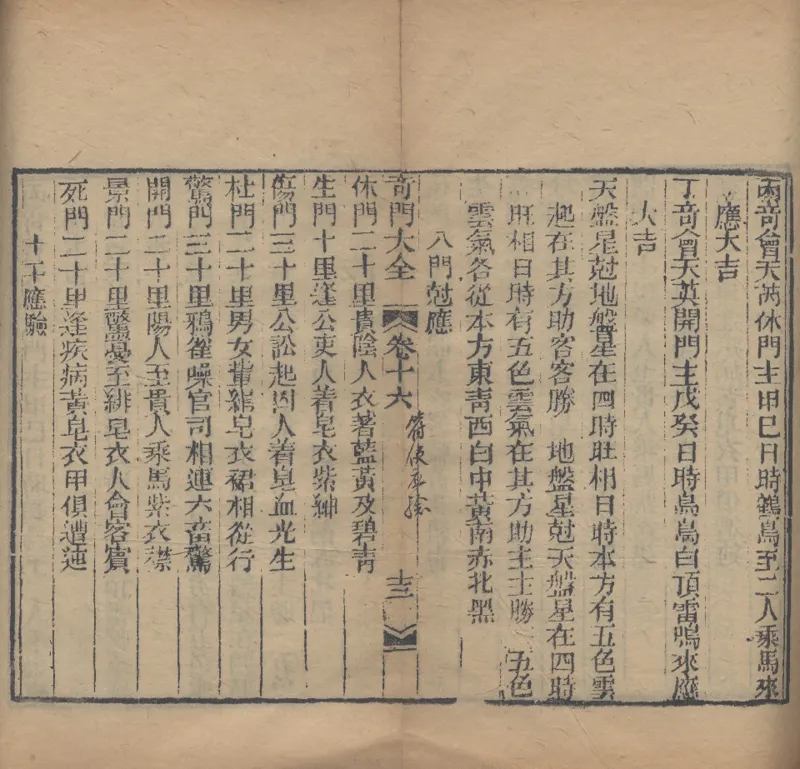 丙奇會天芮休門主甲巳日時鶴鳥至二人乘馬來
應大吉
丁奇會天英開門主戊癸日時鳥白頂雷鳴來應
大吉
天盤星尅地盤星在四時旺相日時本方有五色雲
起在其方助客客勝　地盤星尅天盤星在四時
旺相日時有五色雲氣在其方助主主勝　五色
雲氣各從本方東靑西白中黃南赤北黑
八門尅應
奇門大全　卷十六　符使　十三
休門二十里貴陰人衣著藍黃及碧靑
生門十里逢公吏人着皂衣紫紳
傷門三十里公訟起因人着皂血光生
杜門二十里男女輩緋皂衣裙相從行
驚門三十里鴉雀噪官司相連六畜驚
開門二十里陽人至貴人乘馬紫衣襟
景門二十里驚憂至緋皂衣人會客賓
死門二十里逢疾病黃皂衣甲俱遭迍
十干應驗